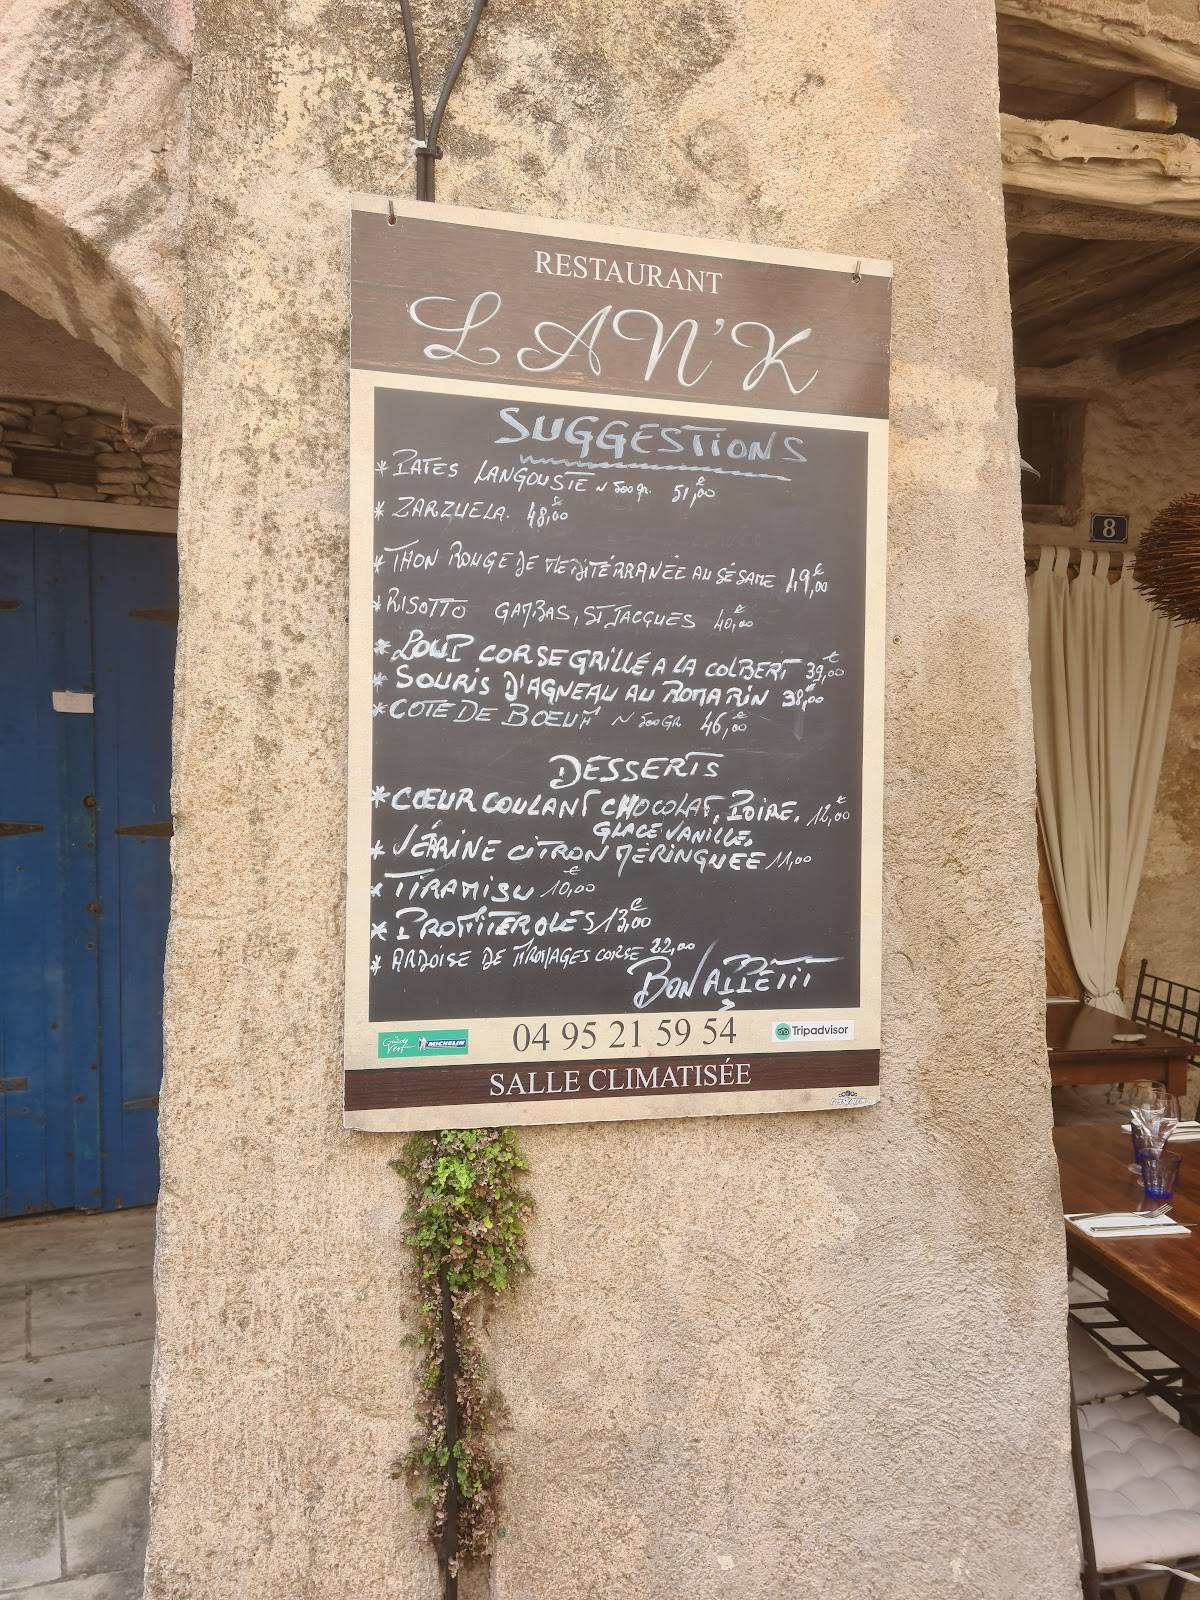 RESTAURANT
L'AN'K
SUGGESTIONS
* PATES LANGOUSTE ~ 500gr. 51,00€
* ZARZUELA. 48,00€
* THON ROUGE DE MEDITÉRRANÉE AU SÉSAME 49,00€
* RISOTTO GAMBAS, ST JACQUES 40,00€
* LOUP CORSE GRILLÉ A LA COLBERT 39,00€
* SOURIS D'AGNEAU AU ROMARIN 38,00€
* COTE DE BŒUF ~ 500GR 46,00€
DESSERTS
* CŒUR COULANT CHOCOLAT, POIRE. 12,00€
GLACE VANILLE.
* VÉRRINE CITRON MÉRINGUEE 11,00
* TIRAMISU 10,00€
* PROFITEROLES 13,00€
* ARDOISE DE FROMAGES CORSE 22,00
BON APPÉTIT
Guide Vert MICHELIN
04 95 21 59 54
Tripadvisor
SALLE CLIMATISÉE
8